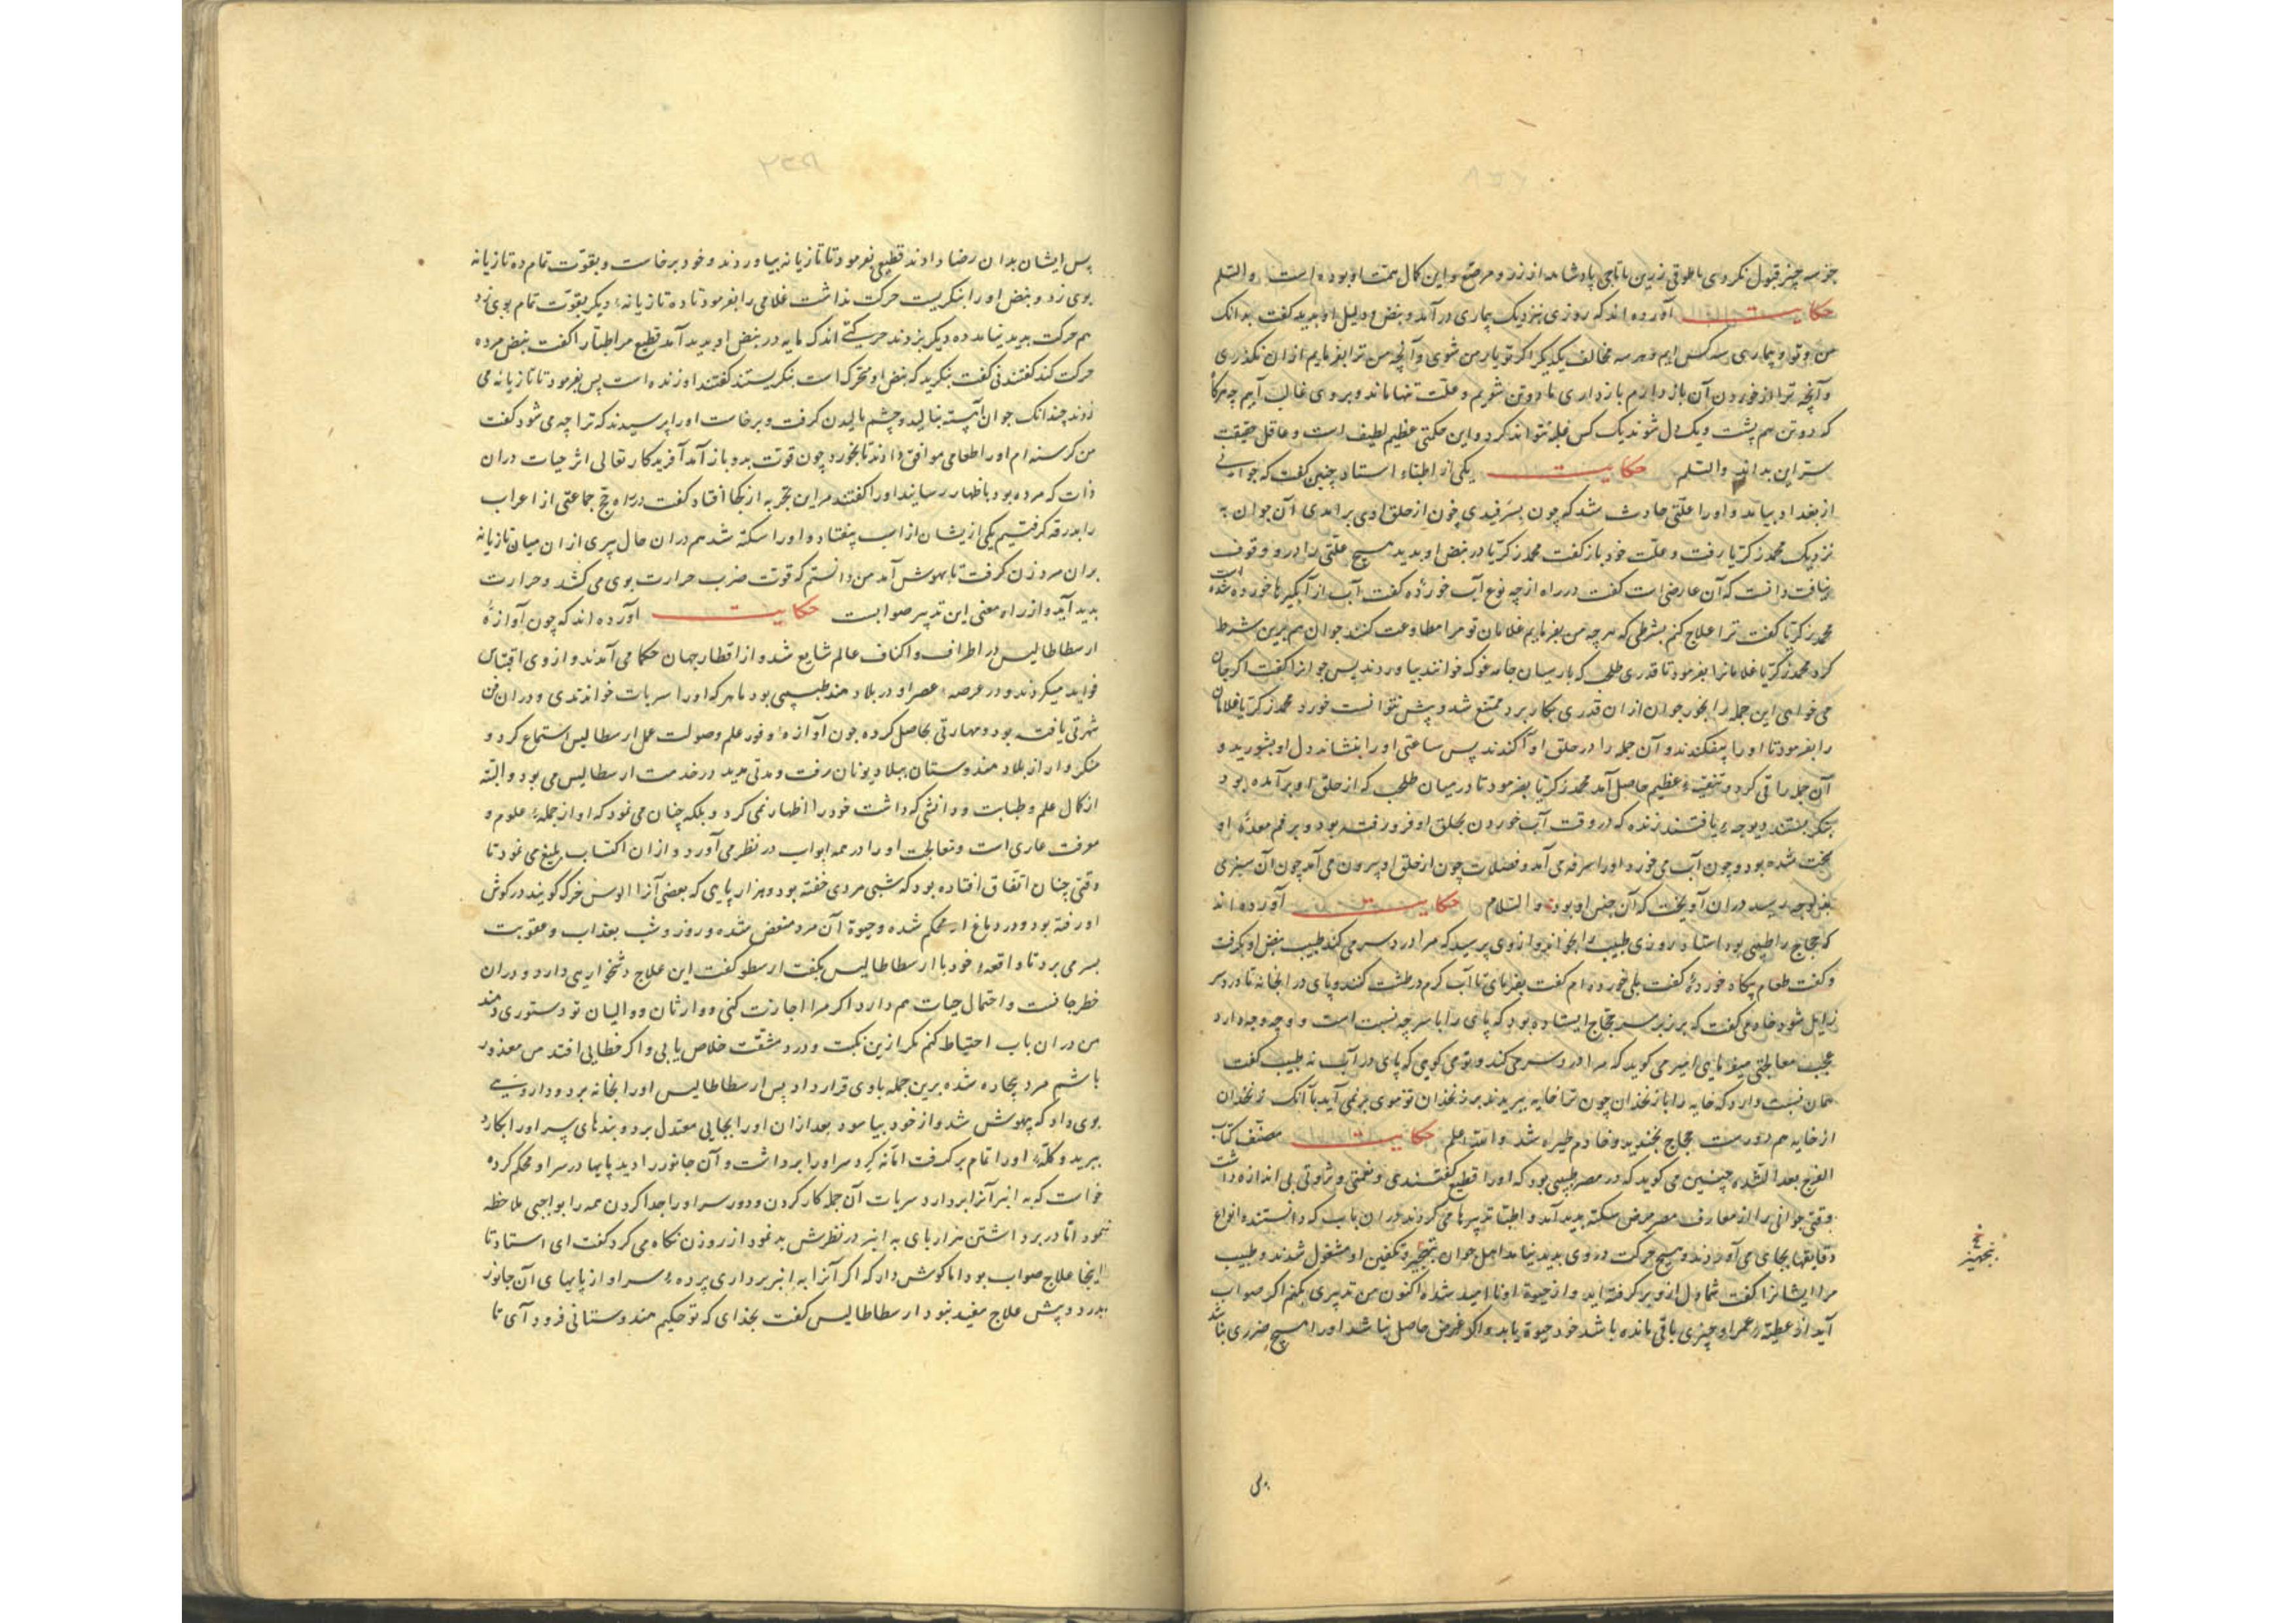 جز سه چیز قبول نکردی یا طوقی زرین یا تاجی یا و این کمال همت او بوده است والسلم
حکایت آورده اند که روزی بنزدیک بیماری در آمد و نبض و دلیل او بدید گفت بدانک
من و تو و بیماری سه کس ایم و هر سه مخالف یکدیگر اگر تو یار من شوی و آنچه من ترا بفرمایم از ان نگذری
و آنچه ترا از خوردن آن باز دارم باز داری ما دو تن شویم و علت تنها ماند و بر وی غالب آییم چه هرگاه
که دو تن هم پشت و یک دل شوند یک کس غلبه نتواند کرد و این حکمتی عظیم لطیف است و عاقل حقیقت
سر این بداند والسلم حکایت یکی از اطباء استاد چنین گفت که جوانی
از بغداد بیامد و او را علتی حادث شد که چون بسرفیدی خون از حلق او بر امدی آن جوان به
نزدیک محمد زکریا رفت و علت خود باز گفت محمد زکریا در نبض او بدید هیچ علتی را در و وقوف
نیافت دانست که آن عارضی است گفت در راه از چه نوع آب خورده گفت آب از آبگیرها خورده شده است
محمد زکریا گفت ترا علاج کنم بشرطی که هر چه من بفرمایم غلامان تو مرا مطاوعت کنند جوان هم برین شرط
کرد محمد زکریا غلامانرا بفرمود تا قدری طحلب که پارسیان جامه غوک خوانند بیاوردند پس جوانرا گفت اگر جان
می خواهی این جمله را بخور جوان از ان قدری بکار برد ممتنع شد و بیش نتوانست خورد محمد زکریا غلامان
را بفرمود تا او را بیفکندند و آن جمله را در حلق او آکندند پس ساعتی او را بنشاند دل او بشورید و
آن جمله را قی کرد و تنقیه عظیم حاصل آمد محمد زکریا بفرمود تا در میان طحلب که از حلق او بر آمده بود
بنگریستند دیوچه یافتند زنده که در وقت آب خوردن بحلق او فرو رفته بود و بر فم معده او
سخت شده بود و چون آب می خورد او را سرفه می آمد و فضلات چون از حلق او بیرون می آمد چون آن سبزی
بدیوچه رسید در ان آویخت که آن جنس او بود والسلام حکایت آورده اند
که حجاج را طبیبی بود استاد روزی طبیب را بخواند و از وی پرسید که مرا درد سر می کند طبیب نبض او بگرفت
و گفت طعام پگاه خورده گفت بلی خورده ام گفت بفرمای تا آب گرم در طشت کنند و پای در انجا نه تا درد سر
زایل شود خادمی گفت که بر زبر سر حجاج ایستاده بود که پای را با سر چه نسبت است و او چه وجه دارد
عجب معالجتی میفرمایی امیر می گوید که مرا درد سر می کند و تو می گویی که پای در آب نه طبیب گفت
همان نسبت دارد که خایه را با زنخدان چون ترا خایه ببریدند بر زنخدان تو موی بر نمی آید با آنک زنخدان
از خایه هم دورست حجاج بخندید و خادم خیره شد والله اعلم حکایت مصنف کتاب
الفرج بعد الشده چنین می گوید که در مصر طبیبی بود که او را قطیع گفتندی و نعمتی و ثروتی بی اندازه داشت
وقتی جوانی را از معارف مصر مرض سکته پدید آمد و اطبا تدبیرها می کردند در ان باب که دانستند انواع
دقایقها بجای می آوردند و هیچ حرکت در وی پدید نیامد اهل جوان بتجهیز و تکفین او مشغول شدند و طبیب
مر ایشانرا گفت شما دل از و بر گرفته اید و از حیوة او نا امید شده اکنون من تدبیری بکنم اگر صواب
آید از عطیه عمر او چیزی باقی مانده باشد خود حیوة یابد و اگر غرض حاصل نباشد او را هیچ ضرری نباشد
بتجهیز
پس ایشان بدان رضا دادند قطیع بفرمود تا تازیانه بیاوردند و خود برخاست و بقوت تمام ده تازیانه
بوی زد و نبض او را بنگریست حرکت نداشت غلامی را بفرمود تا ده تازیانه دیگر بقوت تمام بوی زد
هم حرکت پدید نیامد ده دیگر بزدند حرکتی اندک مایه در نبض او پدید آمد قطیع مر اطبا را گفت نبض مرده
حرکت کند گفتند نی گفت بنگرید که نبض او متحرک است بنگریستند گفتند او زنده است پس بفرمود تا تازیانه می
زدند چندانک جوان آهسته بنالید و چشم مالیدن گرفت و برخاست او را پرسیدند که ترا چه می شود گفت
من گرسنه ام او را طعامی موافق دادند تا بخورد چون قوت بدو باز آمد آفریدگار تعالی اثر حیات در ان
ذات که مرده بود باظهار رسانید او را گفتند مر این تجربه از کجا افتاد گفت در راه حج جماعتی از اعراب
را بدرقه گرفتیم یکی از یشان از اسب بیفتاد و او را سکته شد هم در ان حال پیری از ان میان تازیانه
بر ان مرد زدن گرفت تا بهوش آمد من دانستم که قوت ضرب حرارت بوی می کشد و حرارت
پدید آید و از راه معنی این تدبیر صوابست حکایت آورده اند که چون آوازه
ارسطاطالیس در اطراف و اکناف عالم شایع شد و از اقطار جهان حکما می آمدند و از وی اقتباس
فواید میکردند و در عرصه عصر او در بلاد هند طبیبی بود ماهر که او را سربات خواندندی و در ان فن
شهرتی یافته بود و مهارتی بحاصل کرده چون آوازه وفور علم و صولت عمل ارسطالیس استماع کرد و
متنکروار از بلاد هندوستان ببلاد یونان رفت و مدتی مدید در خدمت ارسطالیس می بود و البته
از کمال علم و طبابت و دانشی که داشت خود را اظهار نمی کرد و بلکه چنان می نمود که او از جمله علوم و
معرفت عاری است و معالجت او را در همه ابواب در نظر می آورد و از ان اکتساب بلیغ می نمود تا
وقتی چنان اتفاق افتاده بود که شبی مردی خفته بود و هزار پایی که بعضی آنرا گوش خرک گویند در گوش
او رفته بود و در دماغ او محکم شده و حیوة آن مرد منغص شده و روز و شب بعذاب و عقوبت
بسر می برد تا واقعه خود با ارسطاطالیس بگفت ارسطو گفت این علاج دشخواریی دارد و در ان
خطر جانست و احتمال حیات هم دارد اگر مرا اجازت کنی و وارثان و والیان تو دستوری دهند
من در ان باب احتیاط کنم مگر ازین نکبت و درد مشقت خلاص یابی و اگر خطایی افتد من معذور
باشم مرد بیچاره شده برین جمله با وی قرار داد پس ارسطاطالیس او را بخانه برد و دارویی
بوی داد که بیهوش شد و از خود بیاسود بعد از ان او را بجایی معتدل برد و بندهای سر او را بکارد
ببرید و کله او را تمام بر گرفت امانه کرد سر او را برداشت و آن جانور را دید پایها در سر او محکم کرده
خواست که به انبر آنرا بردارد سربات آن جمله کار کردن و دور سر او را جدا کردن همه را بواجبی ملاحظه
نمود اما در برداشتن هزارپای به انبر در نظرش بد نمود از روزن نگاه می کرد گفت ای استاد تا
اینجا علاج صواب بود اما گوش دار که اگر آنرا به انبر برداری پرده سر او از پایهای آن جانور
بدرد و بیش علاج مفید نبود ارسطاطالیس گفت بخدای که تو حکیم هندوستانی فرود آی تا